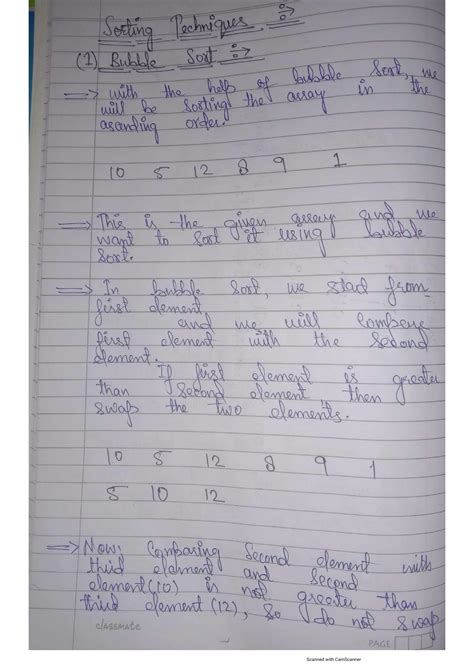 Sorting Techniques :->
(1) Bubble Sort :->
=> with the help of bubble sort, we
will be sorting the array in the
asanding order.
10 5 12 8 9 1
=> This is the given array and we
want to sort it using bubble
sort.
=> In bubble sort, we start from
first element
and we will compare
first element with the second
element.
If first element is greater
than second element then
swap the two elements.
10 5 12 8 9 1
5 10 12
=> Now, Comparing second element with
third element and second
element (10) is not greater than
third element (12), so do not swap
classmate
PAGE
Scanned with CamScanner